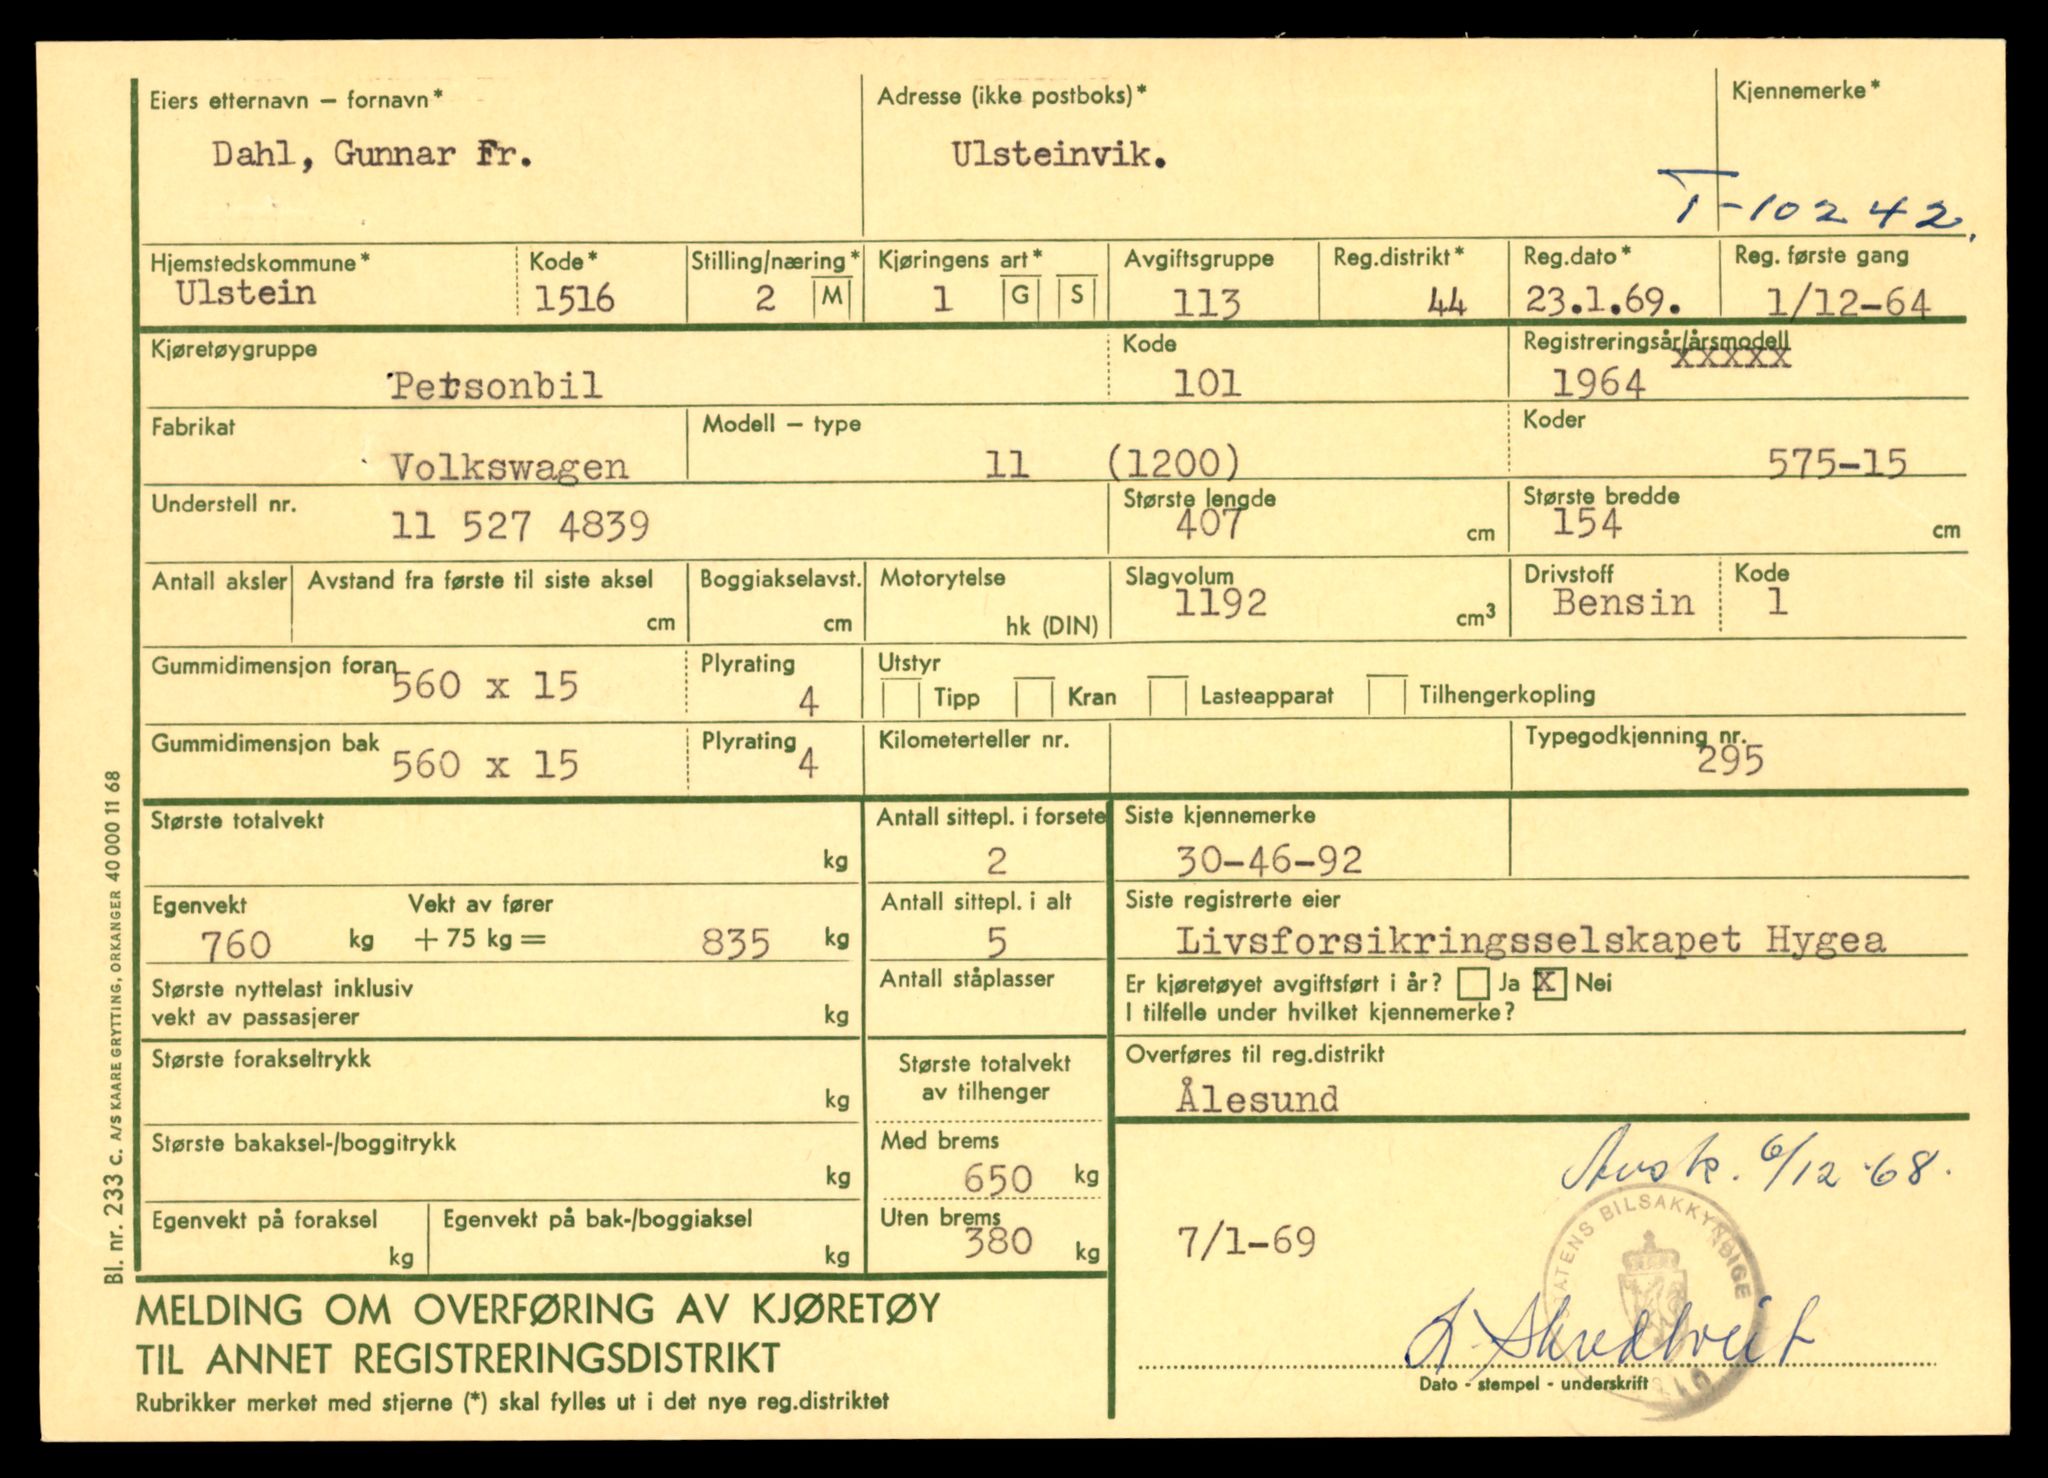 Eiers etternavn – fornavn*
Dahl, Gunnar Fr.
Adresse (ikke postboks)*
Ulsteinvik.
Kjennemerke*
T-10242.
Hjemstedskommune*
Ulstein
Kode*
1516
Stilling/næring*
2 M
Kjøringens art*
1 G S
Avgiftsgruppe
113
Reg.distrikt*
44
Reg.dato*
23.1.69.
Reg. første gang
1/12-64
Kjøretøygruppe
Personbil
Kode
101
Registreringsår/årsmodell
xxxxx
1964
Fabrikat
Volkswagen
Modell – type
11 (1200)
Koder
575-15
Understell nr.
11 527 4839
Største lengde
407 cm
Største bredde
154 cm
Antall aksler
Avstand fra første til siste aksel
cm
Boggiakselavst.
cm
Motorytelse
hk (DIN)
Slagvolum
1192 cm³
Drivstoff
Bensin
Kode
1
Gummidimensjon foran
560 x 15
Plyrating
4
Utstyr
Tipp Kran Lasteapparat Tilhengerkopling
Gummidimensjon bak
560 x 15
Plyrating
4
Kilometerteller nr.
Typegodkjenning nr.
295
Største totalvekt
kg
Antall sittepl. i forsete
2
Siste kjennemerke
30-46-92
Egenvekt
760 kg
Vekt av fører
+ 75 kg = 835 kg
Antall sittepl. i alt
5
Siste registrerte eier
Livsforsikringsselskapet Hygea
Største nyttelast inklusiv
vekt av passasjerer kg
Antall ståplasser
Er kjøretøyet avgiftsført i år? Ja X Nei
I tilfelle under hvilket kjennemerke?
Største forakseltrykk
kg
Største totalvekt
av tilhenger
Overføres til reg.distrikt
Ålesund
Største bakaksel-/boggitrykk
kg
Med brems
650 kg
Avsk. 6/12-68.
Egenvekt på foraksel
kg
Egenvekt på bak-/boggiaksel
kg
Uten brems
380 kg
7/1-69
STATENS BILSAKKYNDIGE
Dato - stempel - underskrift
MELDING OM OVERFØRING AV KJØRETØY
TIL ANNET REGISTRERINGSDISTRIKT
Rubrikker merket med stjerne (*) skal fylles ut i det nye reg.distriktet
Bl. nr. 233 c. A/S KAARE GRYTTING, ORKANGER 40 000 11 68